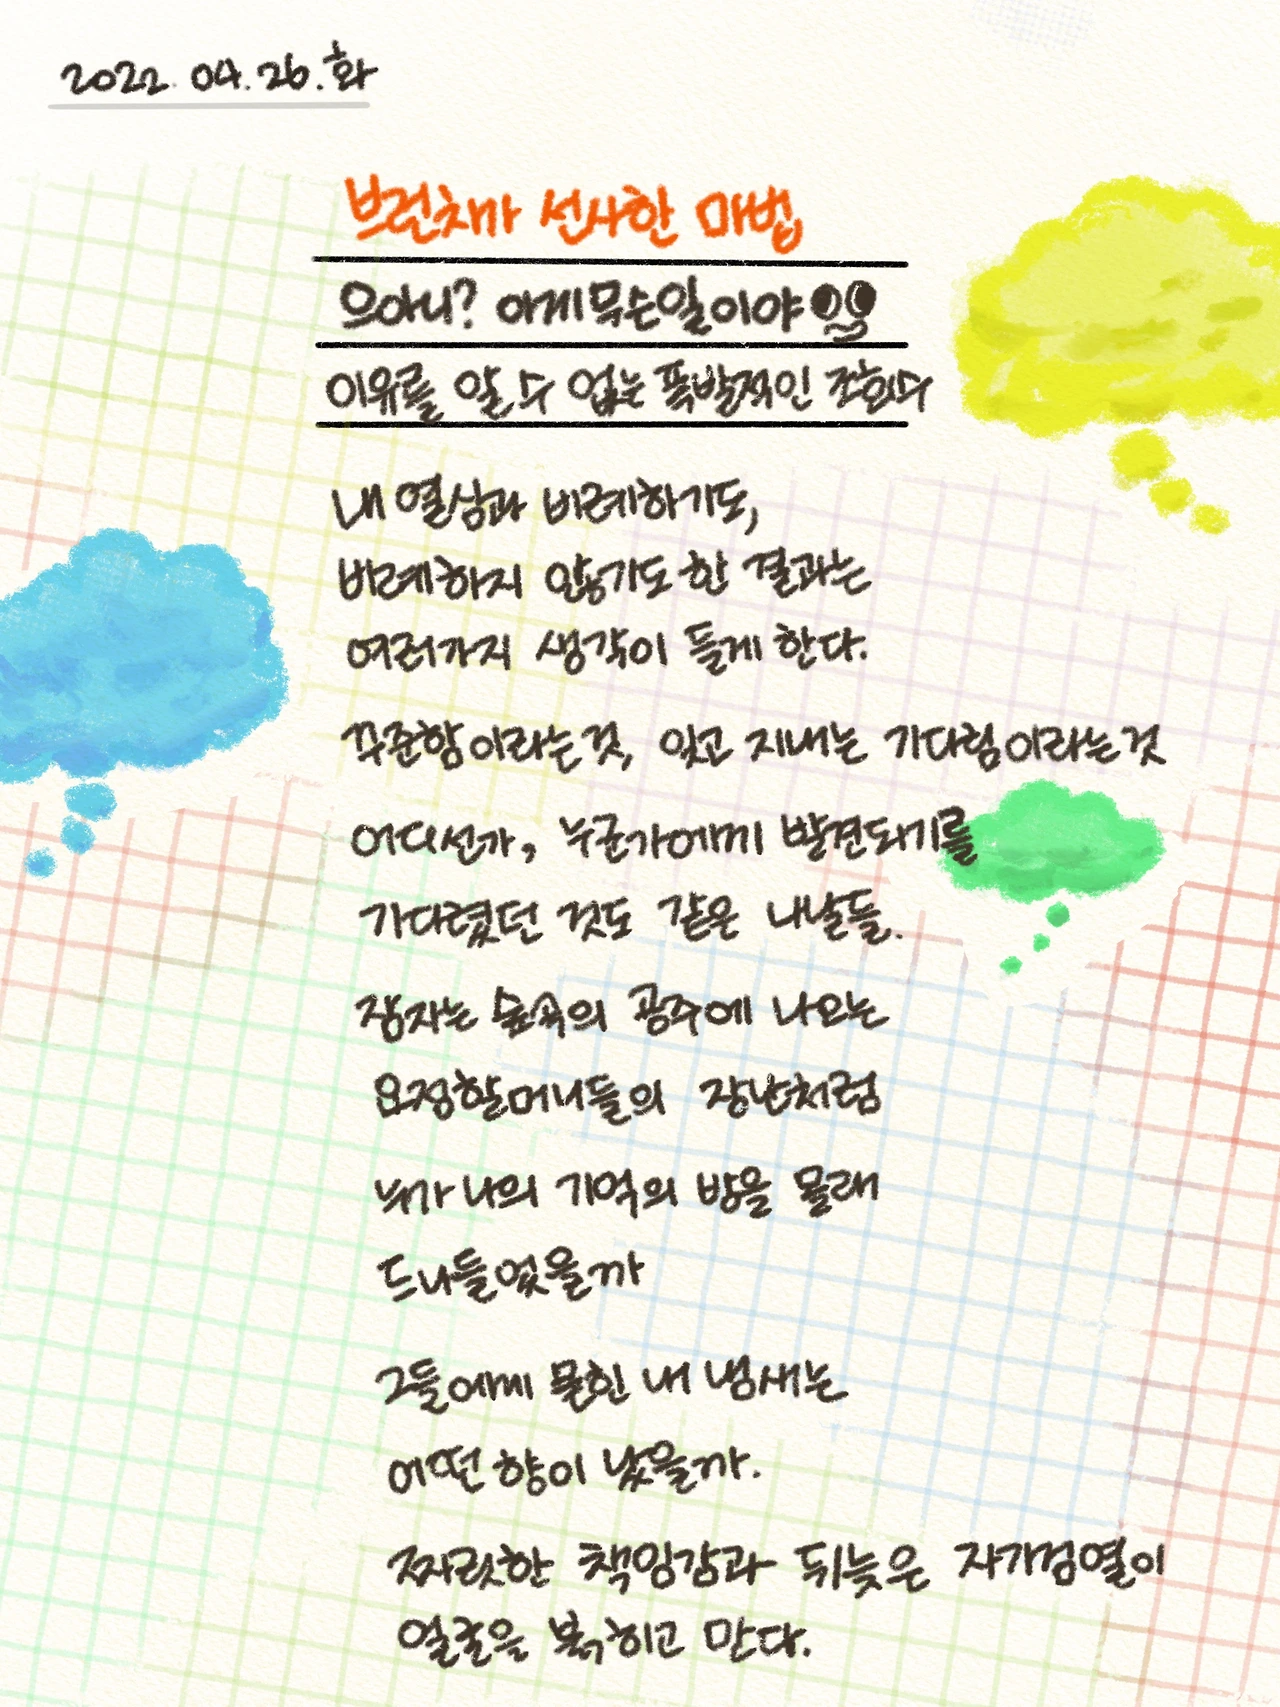 2022. 04. 26. 화
브런치가 선사한 마법
으아니? 아게 무슨일이야
이유를 알 수 없는 폭발적인 조회수
내 열심과 비례하기도,
비례하지 않기도 한 결과는
여러가지 생각이 들게 한다.
꾸준함이라는 것, 잊고 지내는 기다림이라는 것
어디선가, 누군가에께 발견되기를
기다렸던 것도 같은 나날들.
잠자는 숲속의 공주에 나오는
요정할머니들의 장난처럼
누가 나의 기억의 방을 몰래
드나들었을까
그들에께 묻힌 내 냄새는
어떤 향이 났을까.
짜릿한 책임감과 뒤늦은 자가검열이
얼굴을 붉히고 만다.